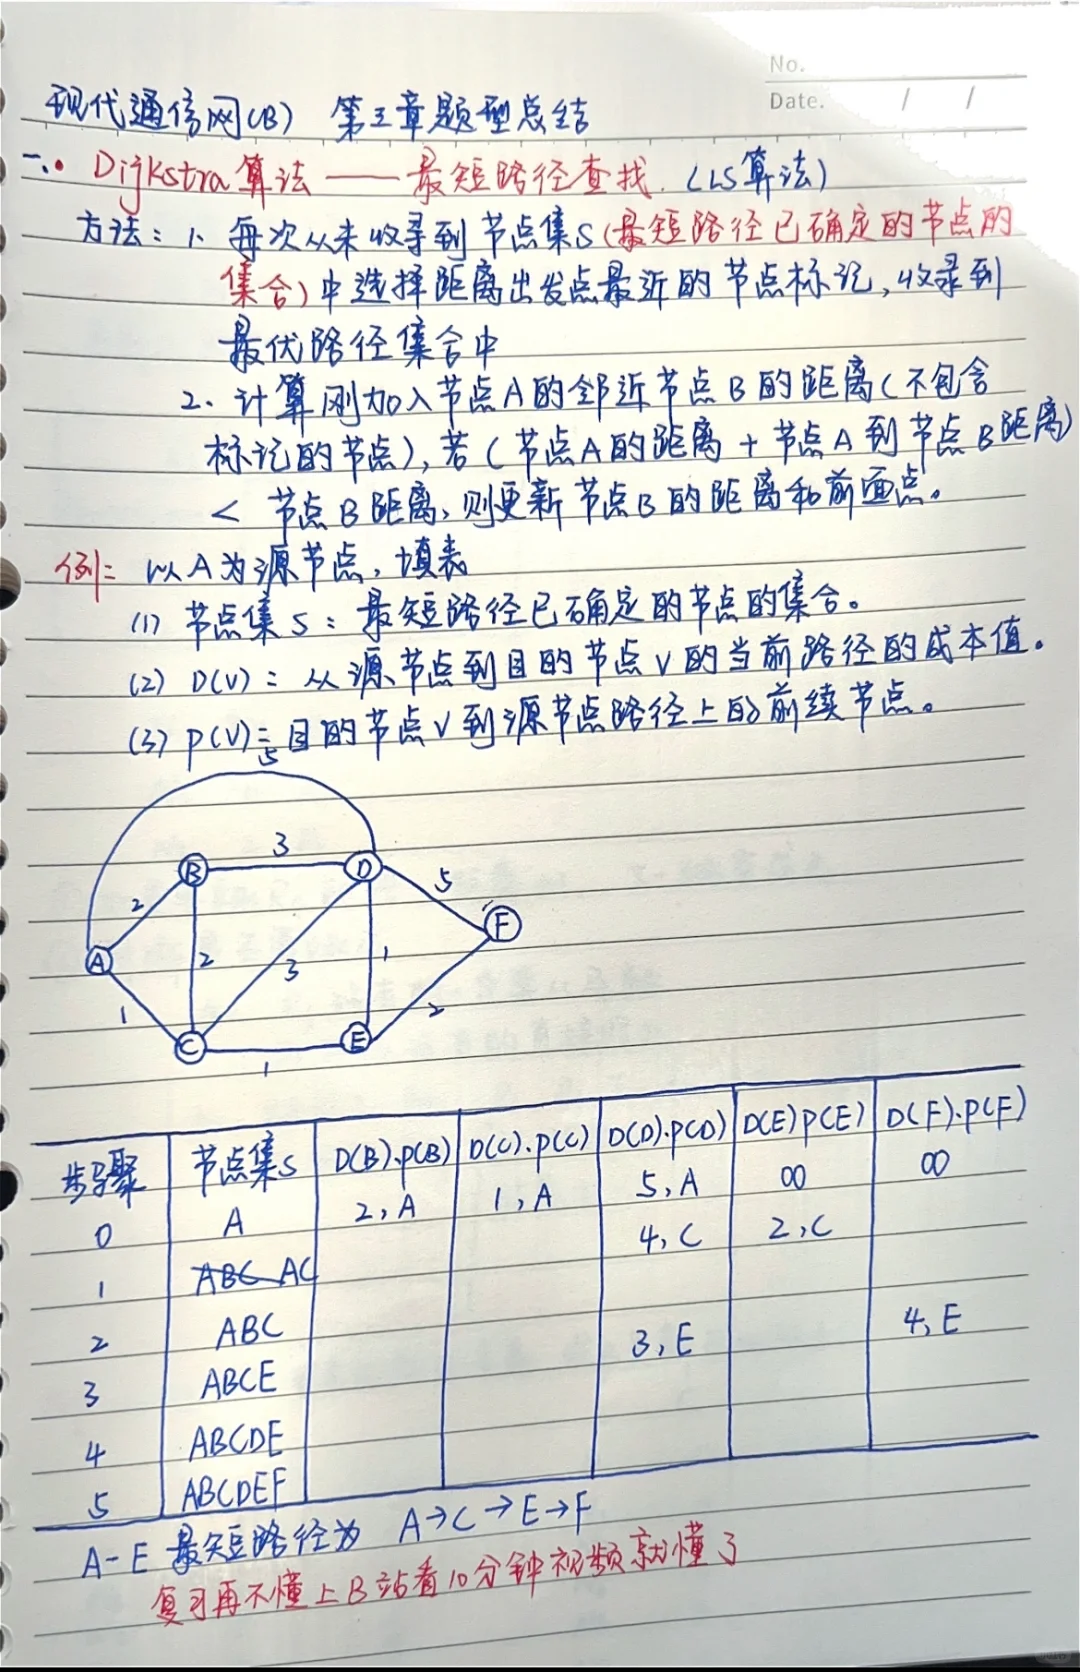 No.
Date. / /
现代通信网(B) 第三章题型总结
一.• Dijkstra算法——最短路径查找.(LS算法)
方法:1、每次从未收寻到节点集S(最短路径已确定的节点的
集合)中选择距离出发点最近的节点标记,收录到
最优路径集合中
2. 计算刚加入节点A的邻近节点B的距离(不包含
标记的节点),若(节点A的距离+节点A到节点B距离)
< 节点B距离,则更新节点B的距离和前面点。
例: 以A为源节点,填表
(1) 节点集S:最短路径已确定的节点的集合。
(2) D(V):从源节点到目的节点V的当前路径的成本值。
(3) P(V):目的节点V到源节点路径上的前续节点。
5
B 3 D
2 5
F
A 2 3 1
1 2
C E
1
步骤 节点集S D(B).P(B) D(C).P(C) D(D).P(D) D(E)P(E) D(F).P(F)
0 A 2,A 1,A 5,A ∞ ∞
1 ABC AC 4,C 2,C
2 ABC
3 ABCE 3,E 4,E
4 ABCDE
5 ABCDEF
A-E最短路径为 A→C→E→F
复习再不懂上B站看10分钟视频就懂了